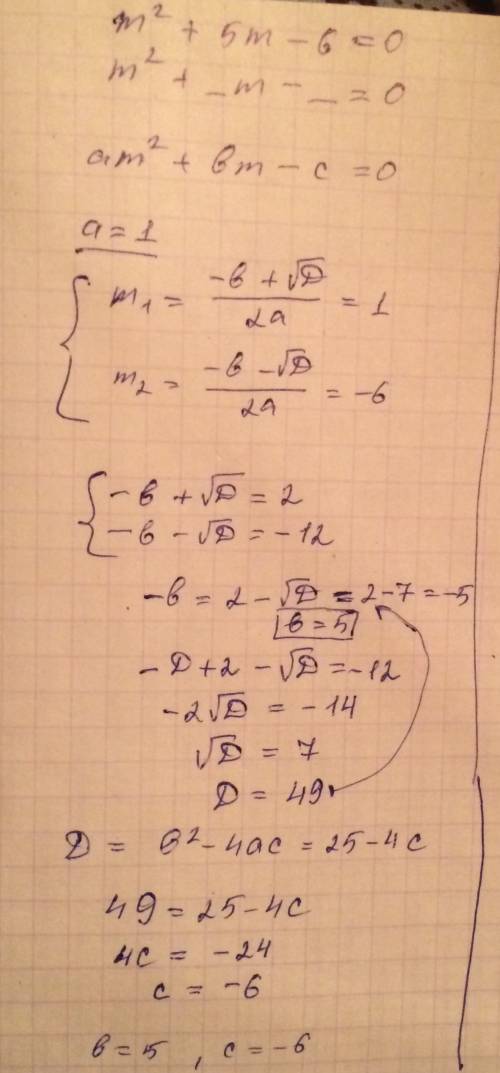 m² + 5m - 6 = 0
m² + _m - _ = 0
am² + bm - c = 0
a = 1
m₁ = (-b + √D)/2a = 1
m₂ = (-b - √D)/2a = -6
-b + √D = 2
-b - √D = -12
-b = 2 - √D = 2 - 7 = -5
b = 5
-D + 2 - √D = -12
-2√D = -14
√D = 7
D = 49
D = b² - 4ac = 25 - 4c
49 = 25 - 4c
4c = -24
c = -6
b = 5, c = -6